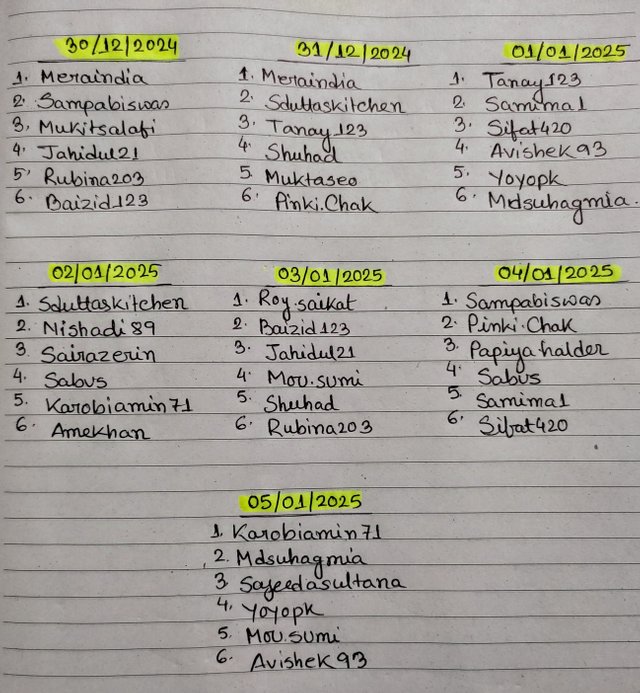 30/12/2024
1. Meraindia
2. Sampabiswas
3. Mukitsalafi
4. Jahidul21
5. Rubina203
6. Baizid123
31/12/2024
1. Meraindia
2. Sduttaskitchen
3. Tanay123
4. Shuhad
5. Muktaseo
6. Pinki.Chak
01/01/2025
1. Tanay123
2. Samima1
3. Sifat420
4. Avishek93
5. Yoyopk
6. Mdsuhagmia.
02/01/2025
1. Sduttaskitchen
2. Nishadi89
3. Sairazerin
4. Sabus
5. Karobiamin71
6. Amekhan
03/01/2025
1. Roy.saikat
2. Baizid123
3. Jahidul21
4. Mou.sumi
5. Shuhad
6. Rubina203
04/01/2025
1. Sampabiswas
2. Pinki.Chak
3. Papiya halder
4. Sabus
5. Samima1
6. Sifat420
05/01/2025
1. Karobiamin71
2. Mdsuhagmia
3. Sayeedasultana
4. Yoyopk
5. Mou.sumi
6. Avishek93